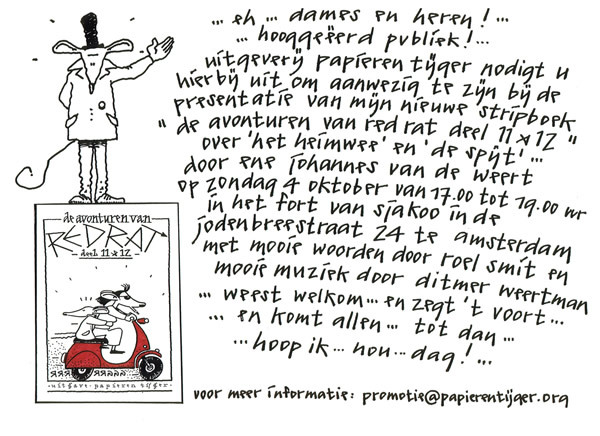 ... eh ... dames en heren! ...
... hooggeëerd publiek! ...
uitgeverij papieren tijger nodigt u
hierbij uit om aanwezig te zijn bij de
presentatie van mijn nieuwe stripboek
"de avonturen van red rat deel 11 * 12"
over 'het heimwee' en 'de spijt' ...
door ene johannes van de weert
op zondag 4 oktober van 17.00 tot 19.00 uur
in het fort van sjakoo in de
jodenbreestraat 24 te amsterdam
met mooie woorden door roel smit en
mooie muziek door ditmer weertman
... weest welkom ... en zegt 't voort ...
... en komt allen ... tot dan ...
... hoop ik ... nou ... dag! ...
voor meer informatie: promotie@papierentijger.org
de avonturen van
REDRAT
deel 11 * 12
uitgave papieren tijger